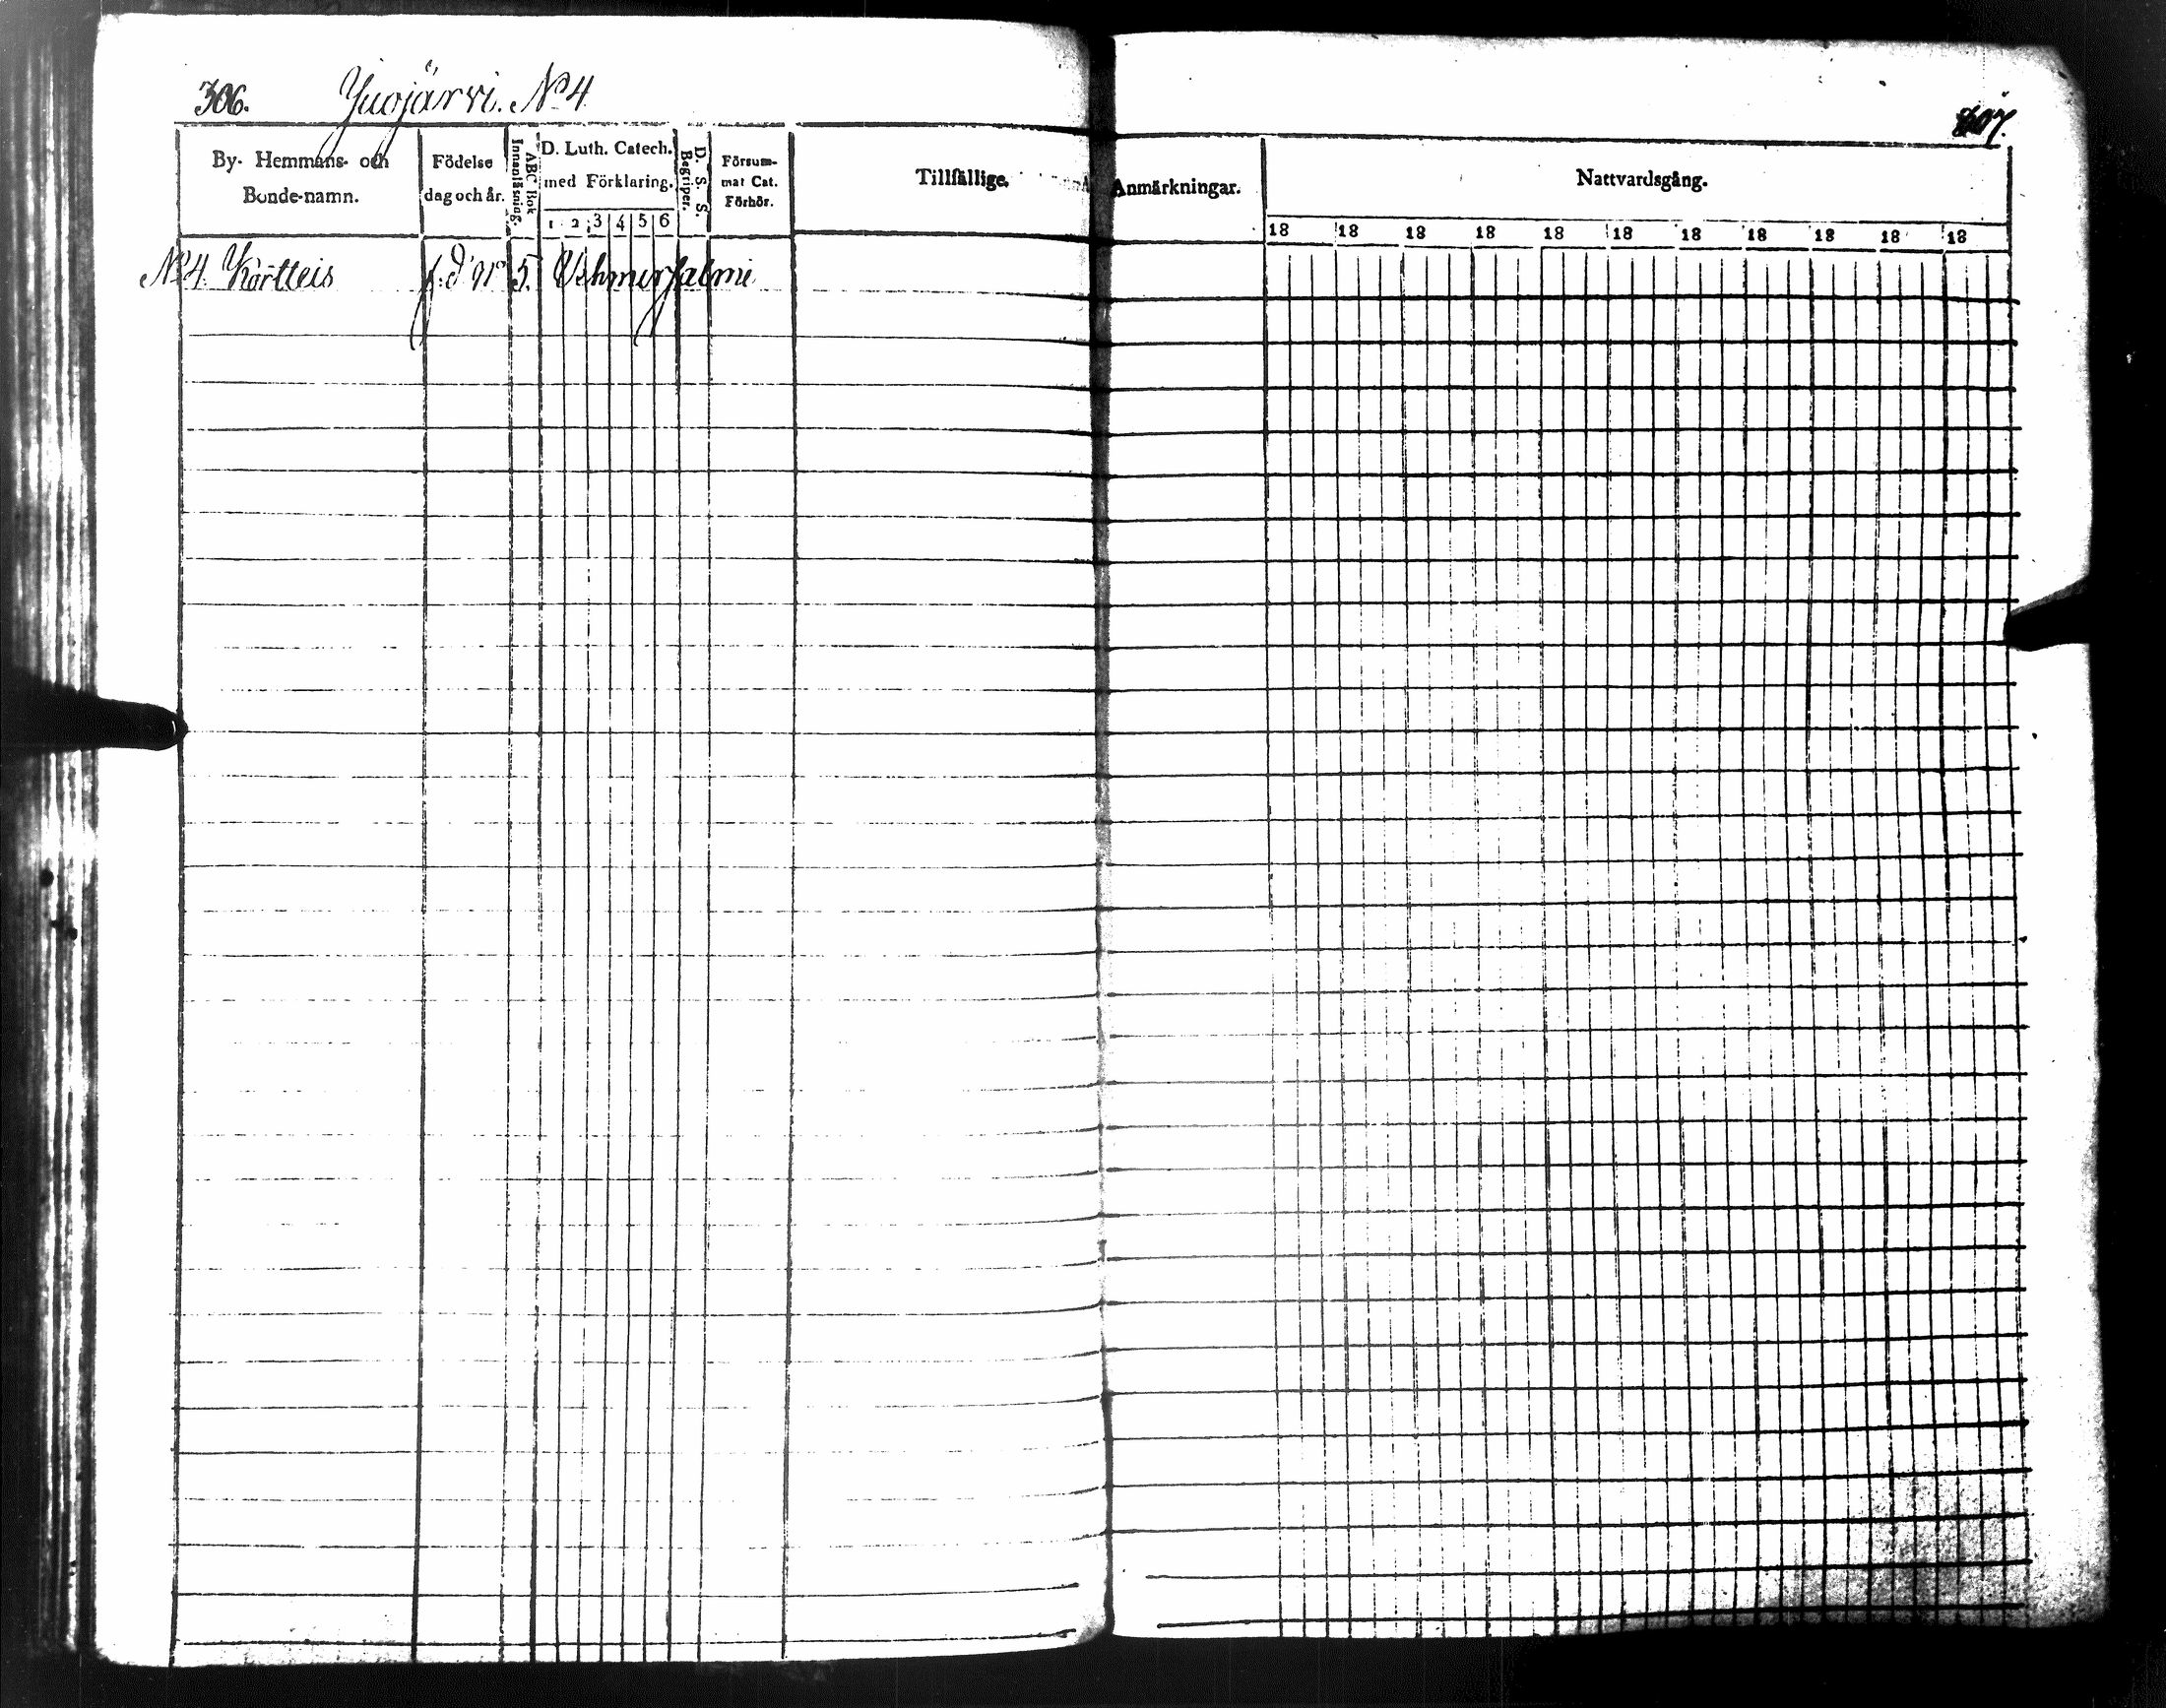 306. Juojärvi. No 4
307.
By- Hemmans- och Bonde-namn.
Födelse dag och år.
ABC Bok Innanläsning.
D. Luth. Catech. med Förklaring.
1 2 3 4 5 6
D. S. S. Begriper.
Försummat Cat. Förhör.
Tillfällige. Anmärkningar.
Nattvardsgång.
18 18 18 18 18 18 18 18 18 18 18
No 4. Kortteis f. d. No 5. Vehmersalmi